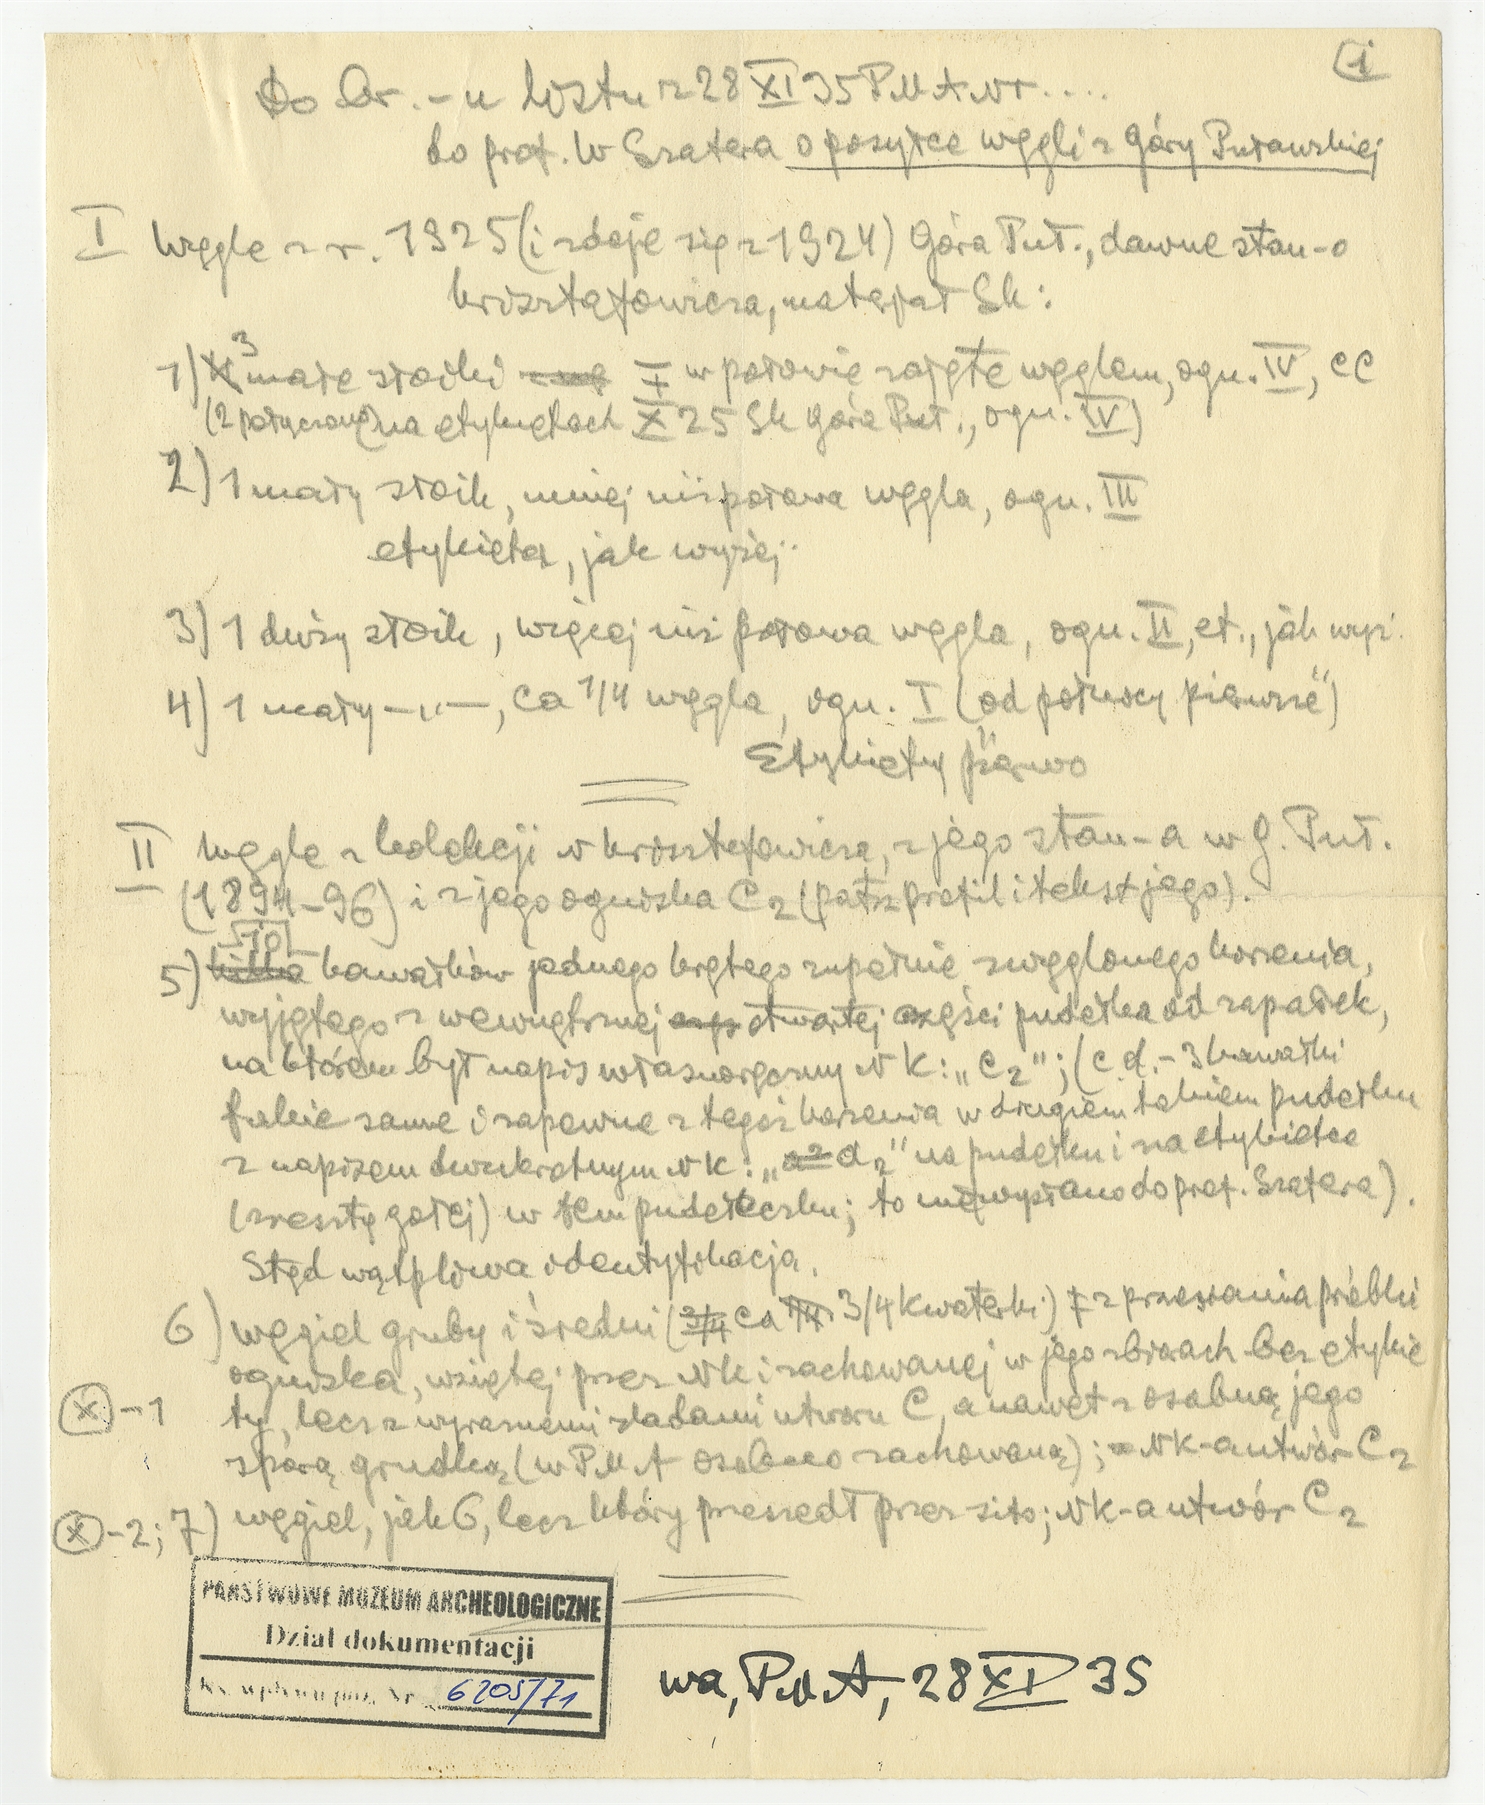 1
Do Ar. – u listu z 28 XI 35 P.M.A. Nr ....
do prof. W Szafera o posyłce węgli z Góry Puławskiej
I Węgle z r. 1925 (i zdaje się z 1924) Góra Puł., dawne stan-o
Krisztafowicza, materjał Sk:
1) 3 małe słoiki w połowie zajęte węglem, ogn. IV, CC
(2 połączone) na etykietach X 25 Sk Góra Puł., ogn. IV)
2) 1 mały słoik, mniej niż połowa węgla, ogn. III
etykieta, jak wyżej.
3) 1 duży słoik, więcej niż połowa węgla, ogn. II, et., jak wyż.
4) 1 mały –„–, ca 1/4 węgla, ogn. I („od północy pierwsze”)
Etykiety
II Węgle z kolekcji N Krisztafowicza, z jego stan-a w G. Puł.
(1894–96) i z jego ogniska C2 (patrz profil i tekst jego).
10
5) kilka kawałków jednego krętego zupełnie zwęglonego korzenia,
wyjętego z wewnętrznej otwartej części pudełka od zapałek,
na którem był napis własnoręczny NK: „C2”; (c.d. – 3 kawałki
takie same i zapewne z tegoż korzenia w drugiem takiem pudełku
z napisem dwukrotnym NK: „a2 d2” na pudełku i na etykietce
(zresztą gołej) w tem pudełeczku; to nie wysłano do prof. Szafera).
Stąd wątpliwa identyfikacja.
6) węgiel gruby i średni (3/4 ca 1/4 3/4 kwaterki) z przesiania próbki
ogniska, wziętej przez NK i zachowanej w jego zbiorach bez etykie
(x) – 1 ty, lecz z wyraznemi śladami utworu C, a nawet z osobną jego
sporą grudką (w P.M.A osobno zachowaną); NK-a utwór C2
(x) – 2; 7) węgiel, jak 6, lecz który przeszedł przez sito; NK-a utwór C2
PAŃSTWOWE MUZEUM ARCHEOLOGICZNE
Dział dokumentacji
Ks. wpływu poz. Nr 6205/71
Wa, P.M.A, 28 XI 35